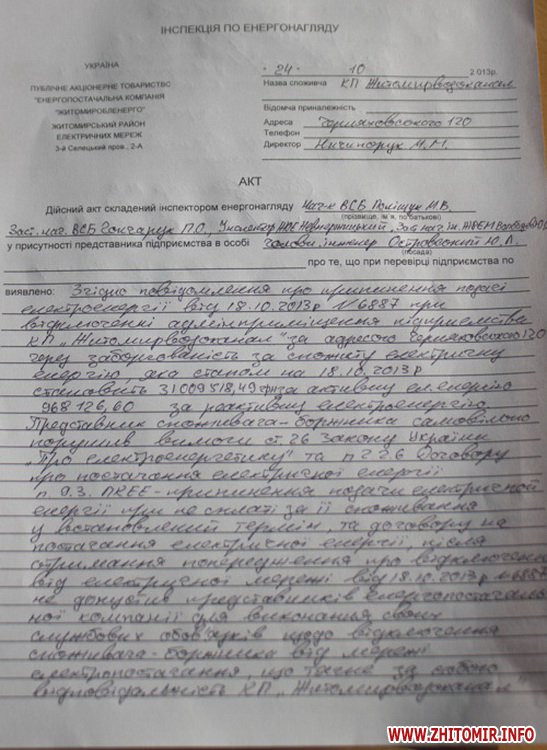 ІНСПЕКЦІЯ ПО ЕНЕРГОНАГЛЯДУ
УКРАЇНА
ПУБЛІЧНЕ АКЦІОНЕРНЕ ТОВАРИСТВО
"ЕНЕРГОПОСТАЧАЛЬНА КОМПАНІЯ
"ЖИТОМИРОБЛЕНЕРГО"
ЖИТОМИРСЬКИЙ РАЙОН
ЕЛЕКТРИЧНИХ МЕРЕЖ
3-й Селецький пров., 2-А
24 10 2013р.
Назва споживача КП Житомирводоканал
Відомча приналежність
Адреса Черняховського 120
Телефон
Директор Ничипорук М.М.
АКТ
Дійсний акт складений інспектором енергонагляду Нач-к ВСБ Поліщук М.В.
(прізвище, ім'я, по батькові)
Заст. нач. ВСБ Гончарук П.О., Інспектор
у присутності представника підприємства в особі головн. інженер Островський Ю.Л.
(посада)
про те, що при перевірці підприємства по
виявлено: Згідно повідомлення про припинення подачі
електроенергії від 18.10.2013р N 6887 при
відключенні адмінприміщення підприємства
КП "Житомирводоканал" за адресою Черняховського 120
через заборгованість за спожиту електричну
енергію, яка станом на 18.10.2013р
становить 31009518,49 за активну ел.енергію
968126,60 за реактивну електроенергію
Представник споживача-боржника самовільно
порушив вимоги ст.26 Закону України
"Про електроенергетику" та п 2.2.6 Договору
про постачання електричної енергії
п. 9.3. ПКЕЕ - припинення подачі електричної
енергії при не сплаті за її споживання
у встановлений термін, та договору на
постачання електричної енергії, після
отримання попередження про відключення
від електричної мережі від 18.10.2013р N 6887
не допустив представників енергопостачаль-
ної компанії для виконання своїх
службових обов'язків щодо відключення
споживача-боржника від мережі
електропостачання, що тягне за собою
відповідальність КП "Житомирводоканал"
WWW.ZHITOMIR.INFO